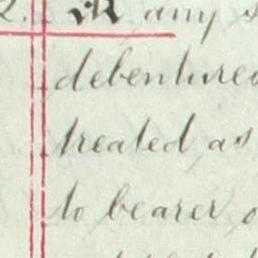 2. If any s
debentures
treated as
to bearer o